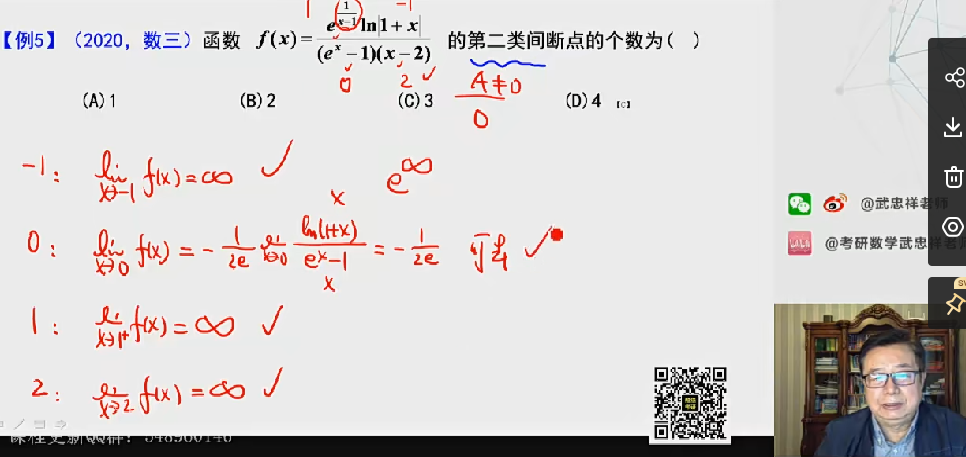 1 -1
【例5】(2020,数三) 函数 f(x) = \frac{e^{\frac{1}{x-1}} ln|1+x|}{(e^x-1)(x-2)} 的第二类间断点的个数为( )
0 2 ✓
\frac{A≠0}{0}
(A) 1 (B) 2 (C) 3 (D) 4 【C】
-1: \lim_{x→-1} f(x) = ∞ ✓ e^∞
x
0: \lim_{x→0} f(x) = -\frac{1}{2e} \lim_{x→0} \frac{ln(1+x)}{e^x-1} = -\frac{1}{2e} 可去 ✓
x
1: \lim_{x→1^+} f(x) = ∞ ✓
2: \lim_{x→2} f(x) = ∞ ✓
@武忠祥老师
@考研数学武忠祥老
课程更新QQ群:
SV